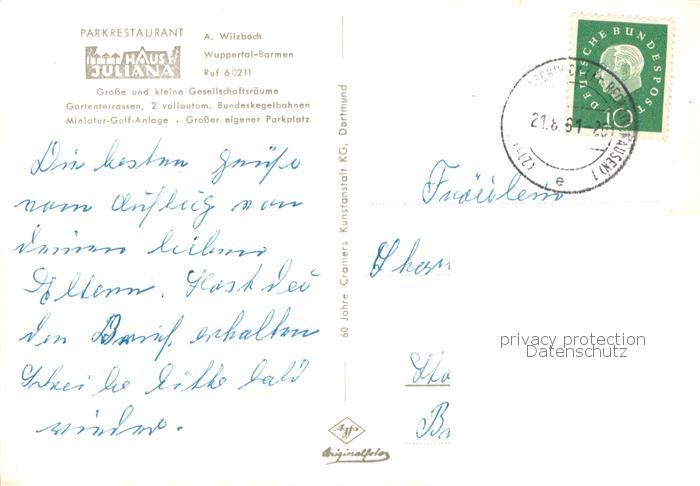 PARKRESTAURANT
HAUS
JULIANA
A. Wilzbach
Wuppertal-Barmen
Ruf 60211
Große und kleine Gesellschaftsräume
Gartenterrassen, 2 vollautom. Bundeskegelbahnen
Miniatur-Golf-Anlage · Großer eigener Parkplatz
Die besten Grüße
vom Ausflug von
deinen lieben
Eltern. Hast du
den Brief erhalten
Schreibe bitte bald
wieder.
60 Jahre Cramers Kunstanstalt KG, Dortmund
Agfa
Originalfoto
DEUTSCHE BUNDESPOST
10
21.8.61-20
e
Fräulein
privacy protection
Datenschutz